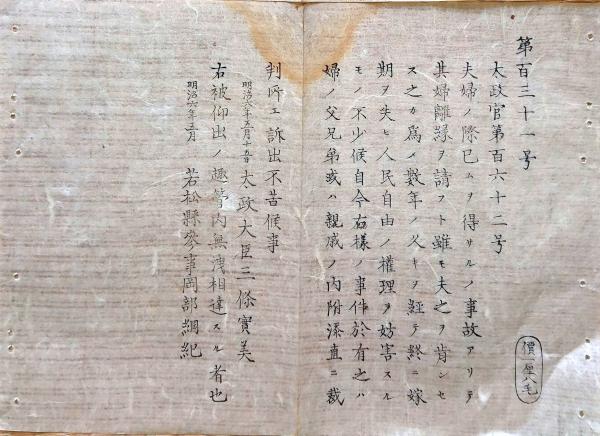 第百三十一号
太政官第百六十二号
夫婦ノ際已ムヲ得サルノ事故アリテ
其婦離縁ヲ請フト雖モ夫之ヲ肯ンセ
ス之カ為メ数年ノ久キヲ経テ終ニ嫁
期ヲ失ヒ人民自由ノ權理ヲ妨害スル
モノ不少候自今右様ノ事件於有之ハ
婦ノ父兄弟或ハ親戚ノ内附添直ニ裁
判所エ訴出不苦候事
明治六年五月十五日 太政大臣三條實美
右被仰出ノ趣管内無洩相達スル者也
明治六年五月 若松縣參事岡部綱紀
價一厘八毛